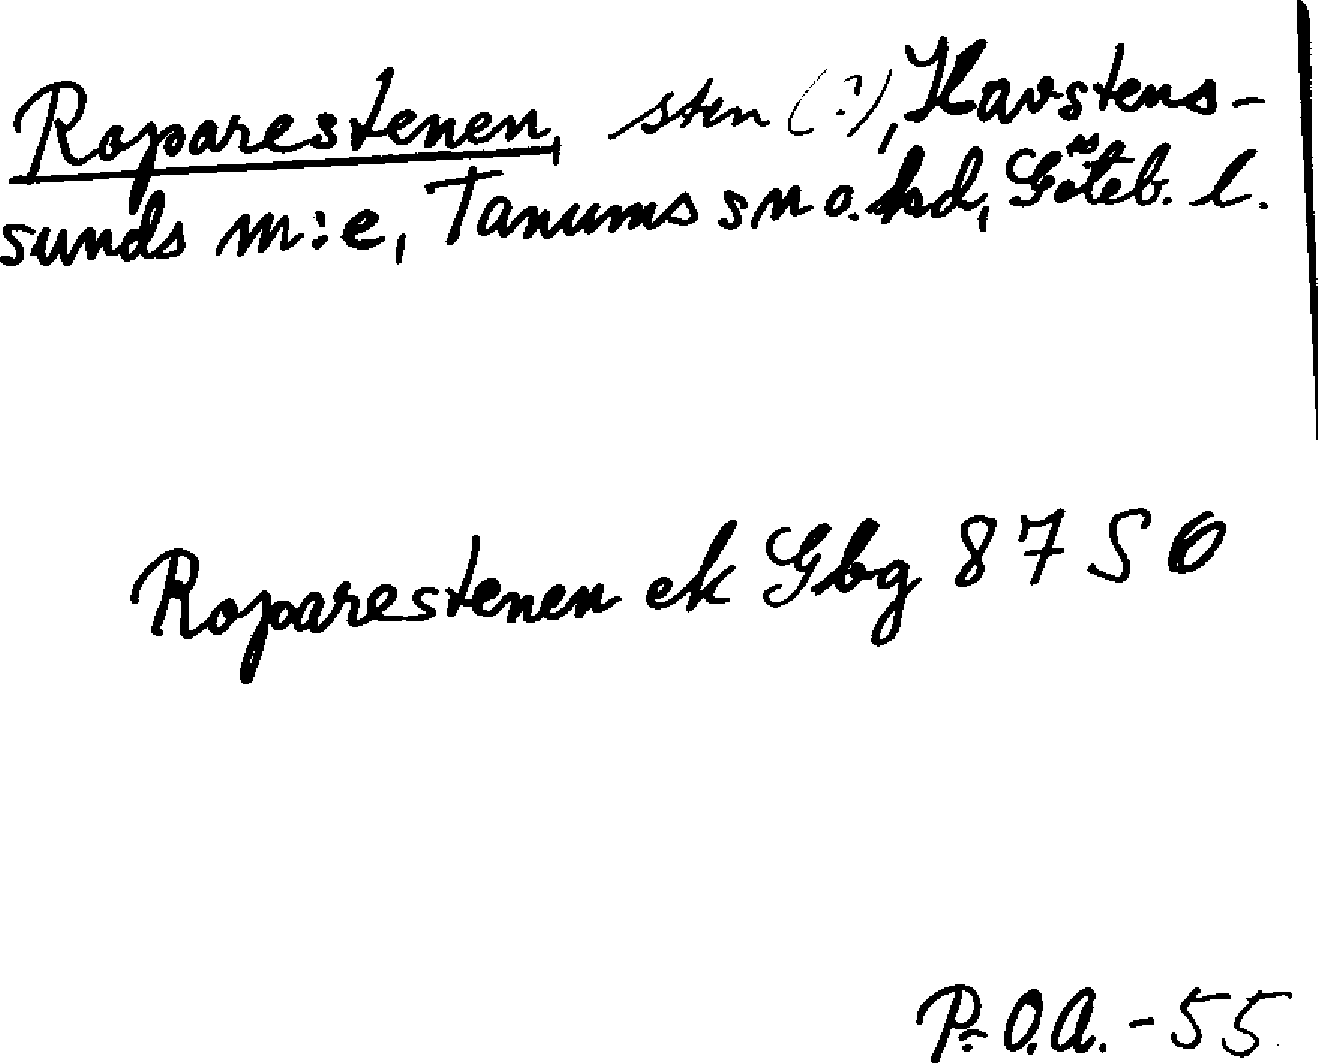 Roparestenen, sten (?), Havstens-
sunds m:e, Tanums sn o. hd, Göteb. l.
Roparestenen ek Gbg 87 SO
P:O.A. -55.